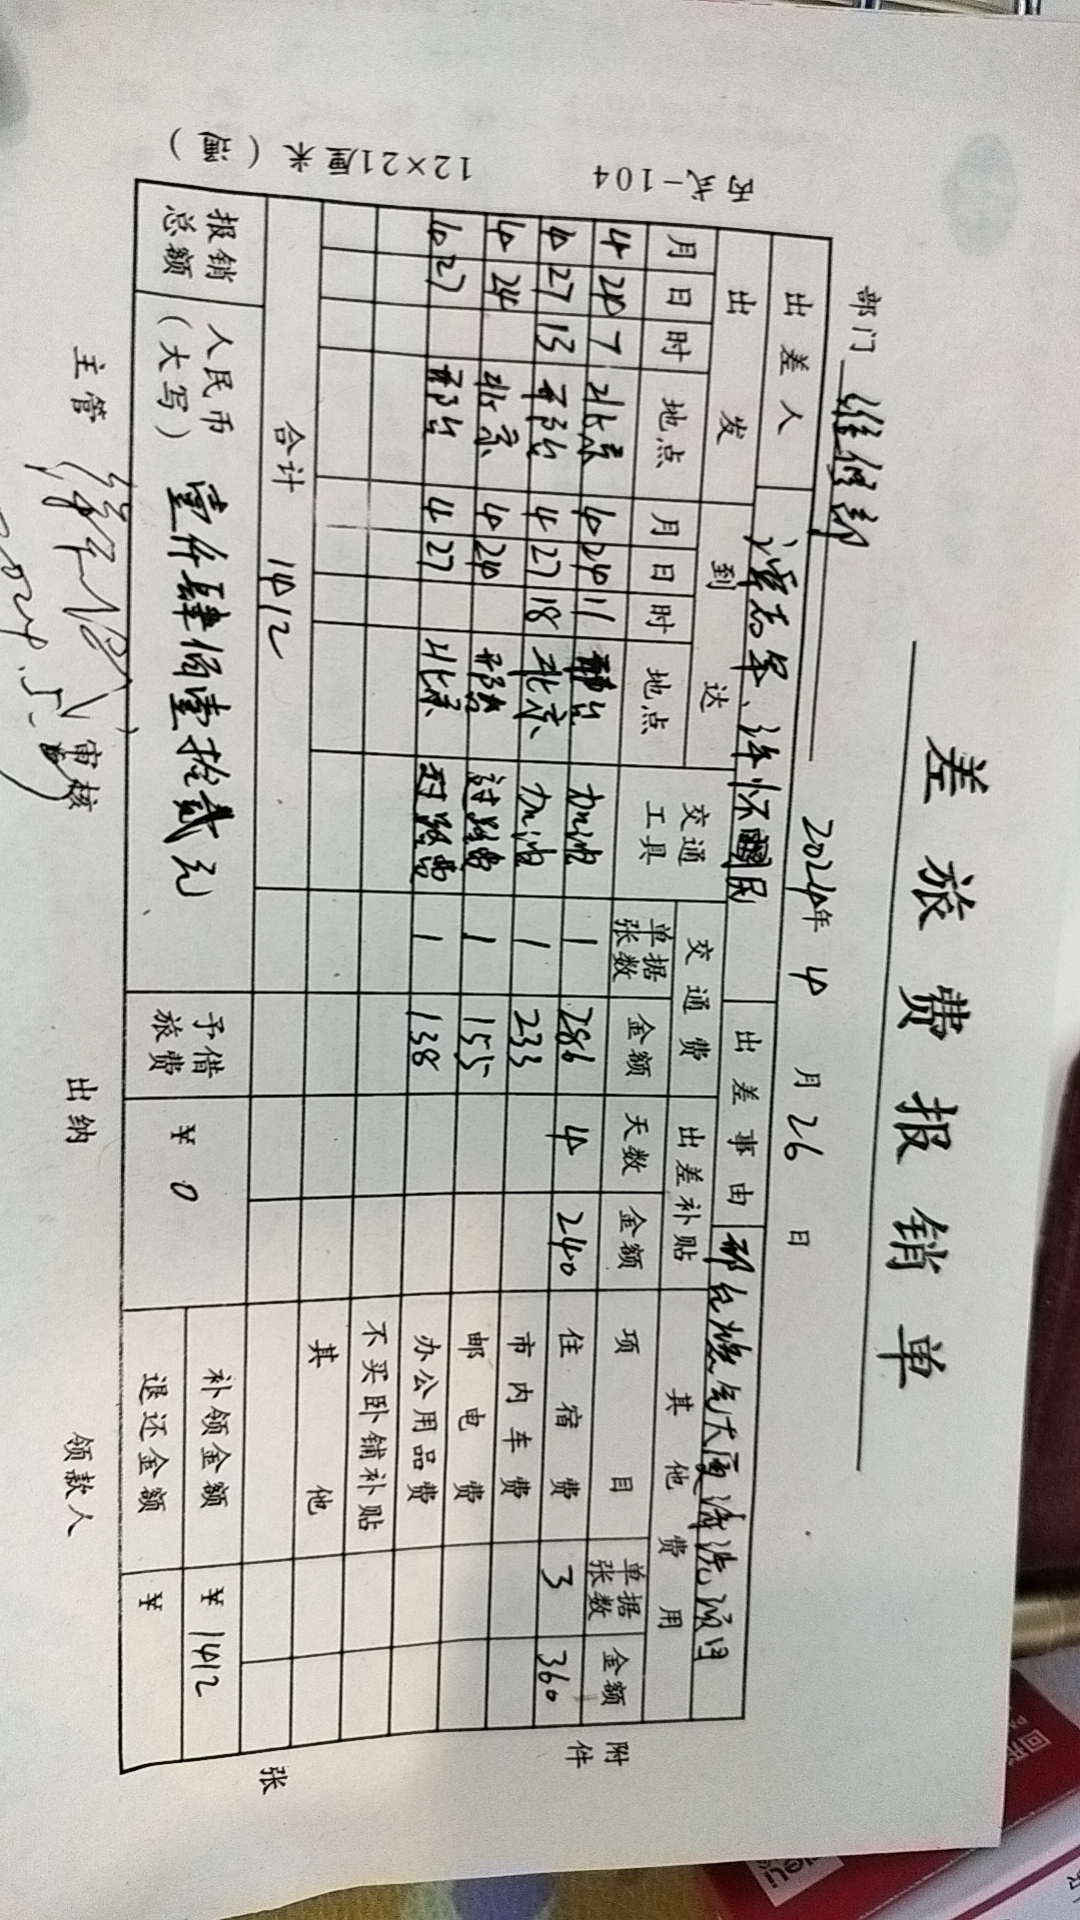 差旅费报销单
部门 维修部 2024年 4 月 26 日
出差人 怀国民 出差事由 邢台燃气大厦清洗项目
出发 到达 交通工具 交通费 出差补贴 其他费用
月 日 时 地点 月 日 时 地点 单据张数 金额 天数 金额 项目 单据张数 金额
4 24 7 北京 4 24 11 邢台 加油 1 286 4 240 住宿费 3 360
4 27 13 邢台 4 27 18 北京 加油 1 233 市内车费
4 24 北京 4 24 邢台 过路费 1 155 邮电费
4 27 邢台 4 27 北京 过路费 1 138 办公用品费
不买卧铺补贴
其他
合计 1412
报销总额 人民币(大写) 壹仟肆佰壹拾贰元 予借旅费 ¥ 0 补领金额 ¥ 1412
退还金额 ¥
主管 审核 出纳 领款人
附件 张
丙式-104 12×21厘米